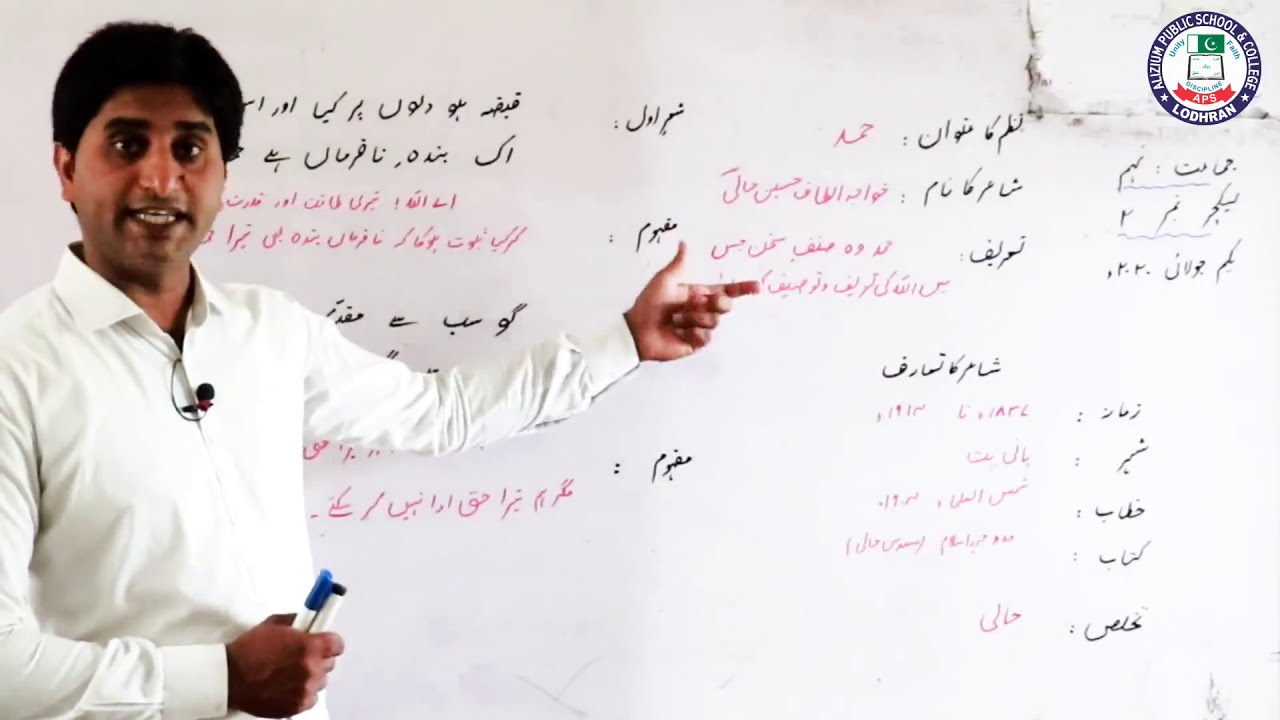 ALIZIUM PUBLIC SCHOOL & COLLEGE
Unity
Faith
DISCIPLINE
APS
LODHRAN
جماعت : نہم
لیکچر نمبر ۲
یکم جولائی ۲۰۲۰ء
نظم کا عنوان : حمد
شاعر کا نام : خواجہ الطاف حسین حالیؔ
تعریف : حمد وہ صنفِ سخن جس
میں اللہ کی تعریف و توصیف
شاعر کا تعارف
زمانہ : ۱۸۳۷ء تا ۱۹۱۴ء
شہر : پانی پت
خطاب : شمس العلماء ۱۹۰۴ء
کتاب : مدوجزراسلام (مسدس حالی)
تخلص : حالی
شعر اول : قبضہ ہو دلوں پر کیا اور اس
اک بندہ نافرماں ہے
مفہوم : اے اللہ! تیری طاقت اور قدرت
کر کیا ثبوت ہوگا کہ نافرمان بندہ بھی تیرا
گو سب سے مقدّم
مفہوم :
مگر ہم تیرا حق ادا نہیں کر سکتے۔